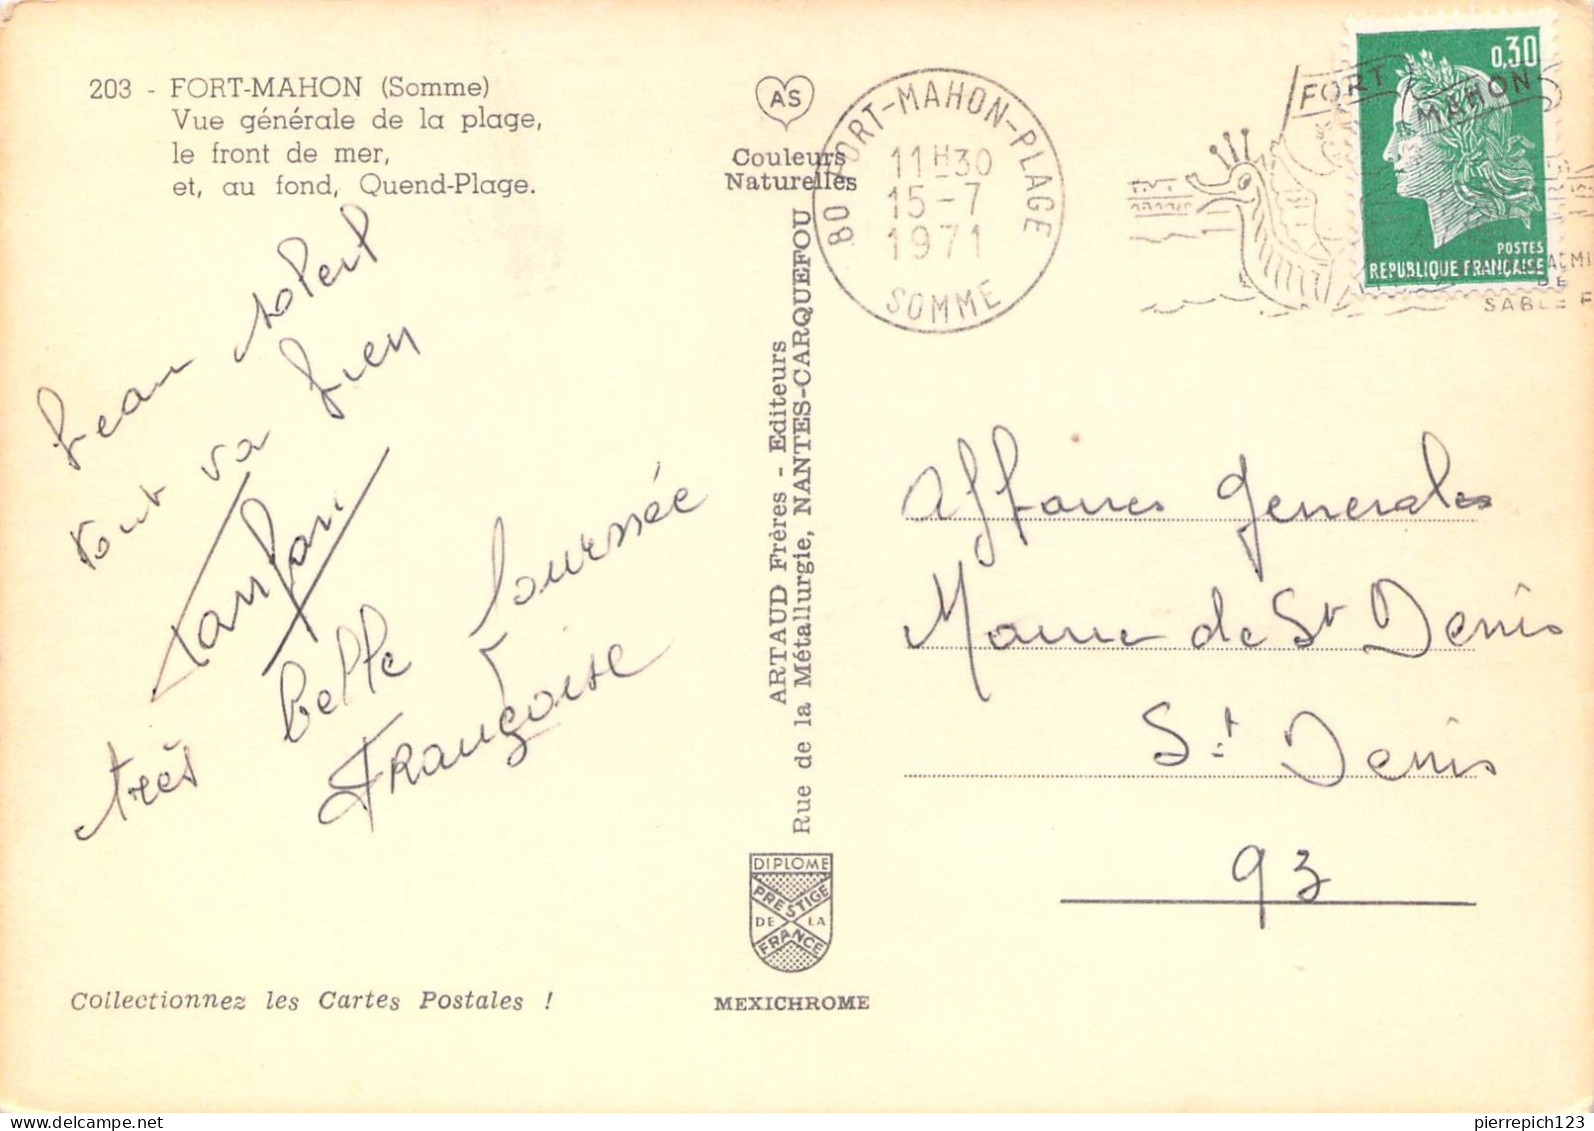 203 - FORT-MAHON (Somme)
Vue générale de la plage,
le front de mer,
et, au fond, Quend-Plage.
AS
Couleurs
Naturelles
80 FORT-MAHON-PLAGE
11H30
15-7
1971
SOMME
FORT MAHON
DE
SABLE F
0,30
POSTES
REPUBLIQUE FRANÇAISE
beau soleil
tout va bien
très belle journée
Françoise
ARTAUD Frères - Editeurs
Rue de la Métallurgie, NANTES-CARQUEFOU
Affaires Generales
Mairie de St Denis
St Denis
93
DIPLOME
PRESTIGE
DE LA
FRANCE
Collectionnez les Cartes Postales !
MEXICHROME
pierrepich123